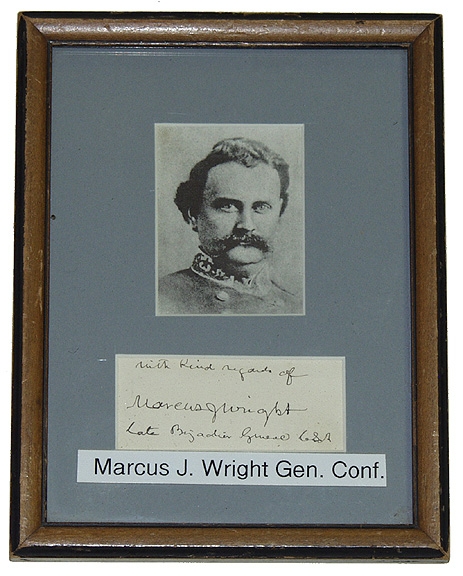 with kind regards of
Marcus J Wright
Late Brigadier General CSA
Marcus J. Wright Gen. Conf.